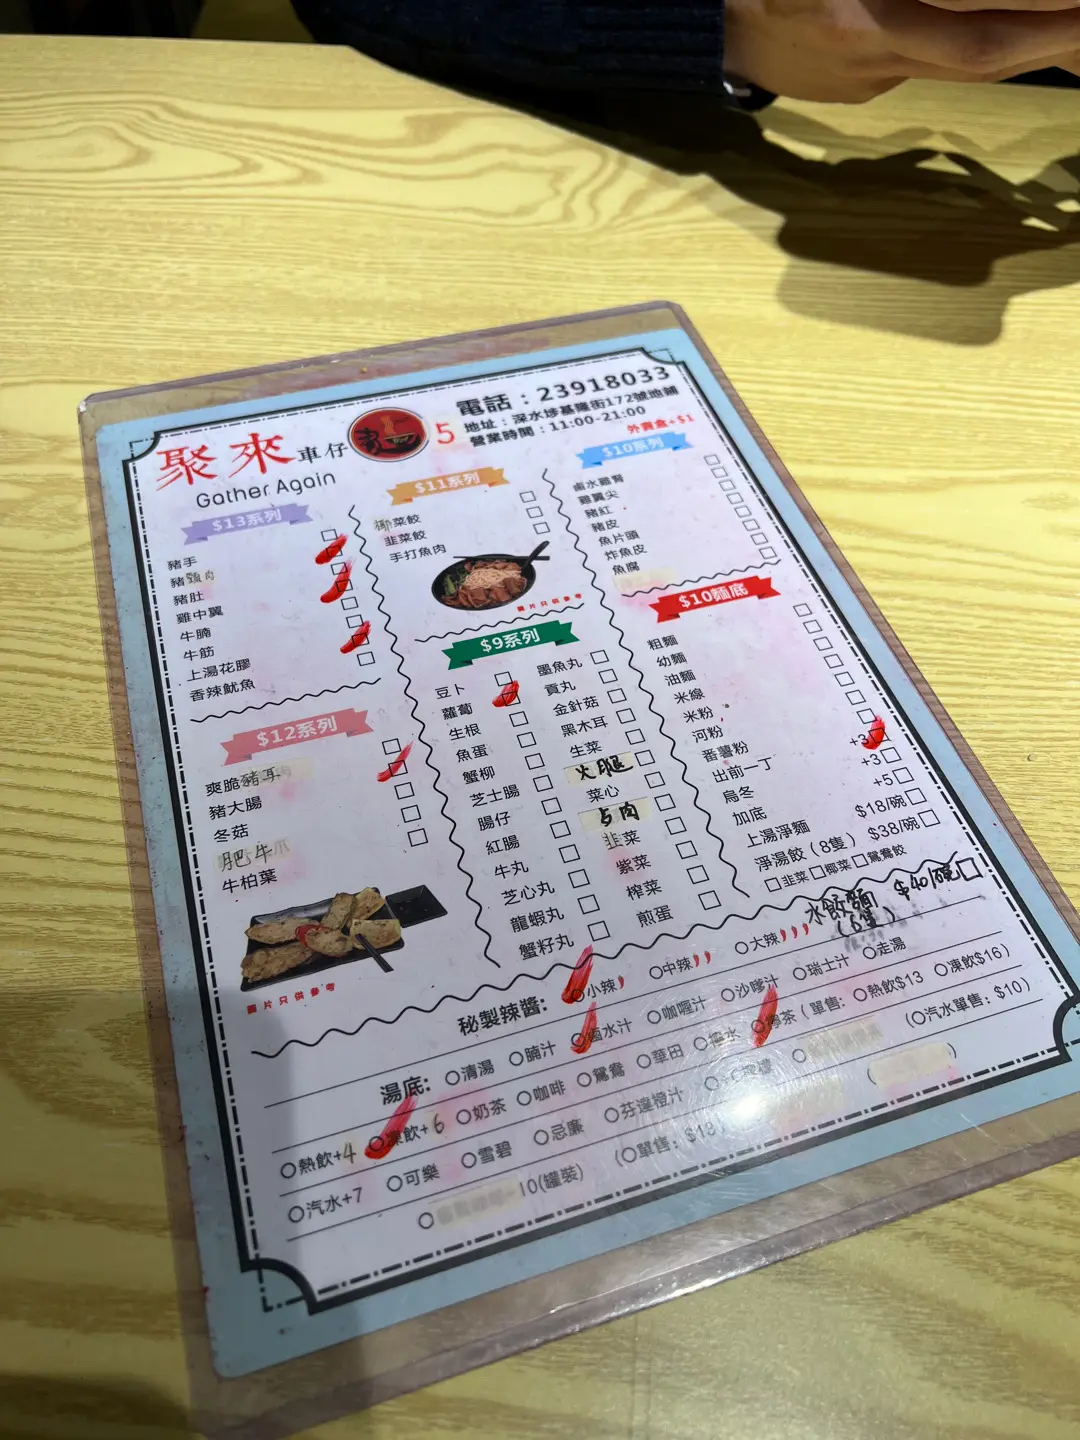 聚來車仔
Gather Again
5
電話：23918033
地址：深水埗基隆街172號地鋪
營業時間：11:00-21:00
外賣盒+$1
$13系列
豬手
豬頸肉
豬肚
雞中翼
牛腩
牛筋
上湯花膠
香辣魷魚
$12系列
爽脆豬耳
豬大腸
冬菇
肥牛
牛柏葉
圖片只供參考
$11系列
椰菜餃
韭菜餃
手打魚肉
圖片只供參考
$9系列
豆卜
蘿蔔
生根
魚蛋
蟹柳
芝士腸
腸仔
紅腸
牛丸
芝心丸
龍蝦丸
蟹籽丸
墨魚丸
貢丸
金針菇
黑木耳
生菜
火腿
菜心
卤肉
韭菜
紫菜
榨菜
煎蛋
$10系列
鹵水雞腎
雞翼尖
豬紅
豬皮
魚片頭
炸魚皮
魚腐
$10麵底
粗麵
幼麵
油麵
米線
米粉
河粉
番薯粉
出前一丁 +3
烏冬 +3
加底 +5
上湯淨麵 $18/碗
淨湯餃（8隻） $38/碗
韭菜 椰菜 鴛鴦餃
水餃麵 $40/碗
秘製辣醬: 小辣 中辣 大辣
湯底: 清湯 腩汁 鹵水汁 咖喱汁 沙嗲汁 瑞士汁 走湯
熱飲+4 凍飲+6 奶茶 咖啡 鴛鴦 華田 檸水 檸茶（單售: 熱飲$13 凍飲$16）
汽水+7 可樂 雪碧 忌廉 芬達橙汁 （汽水單售: $10）
10(罐裝) （單售: $18）